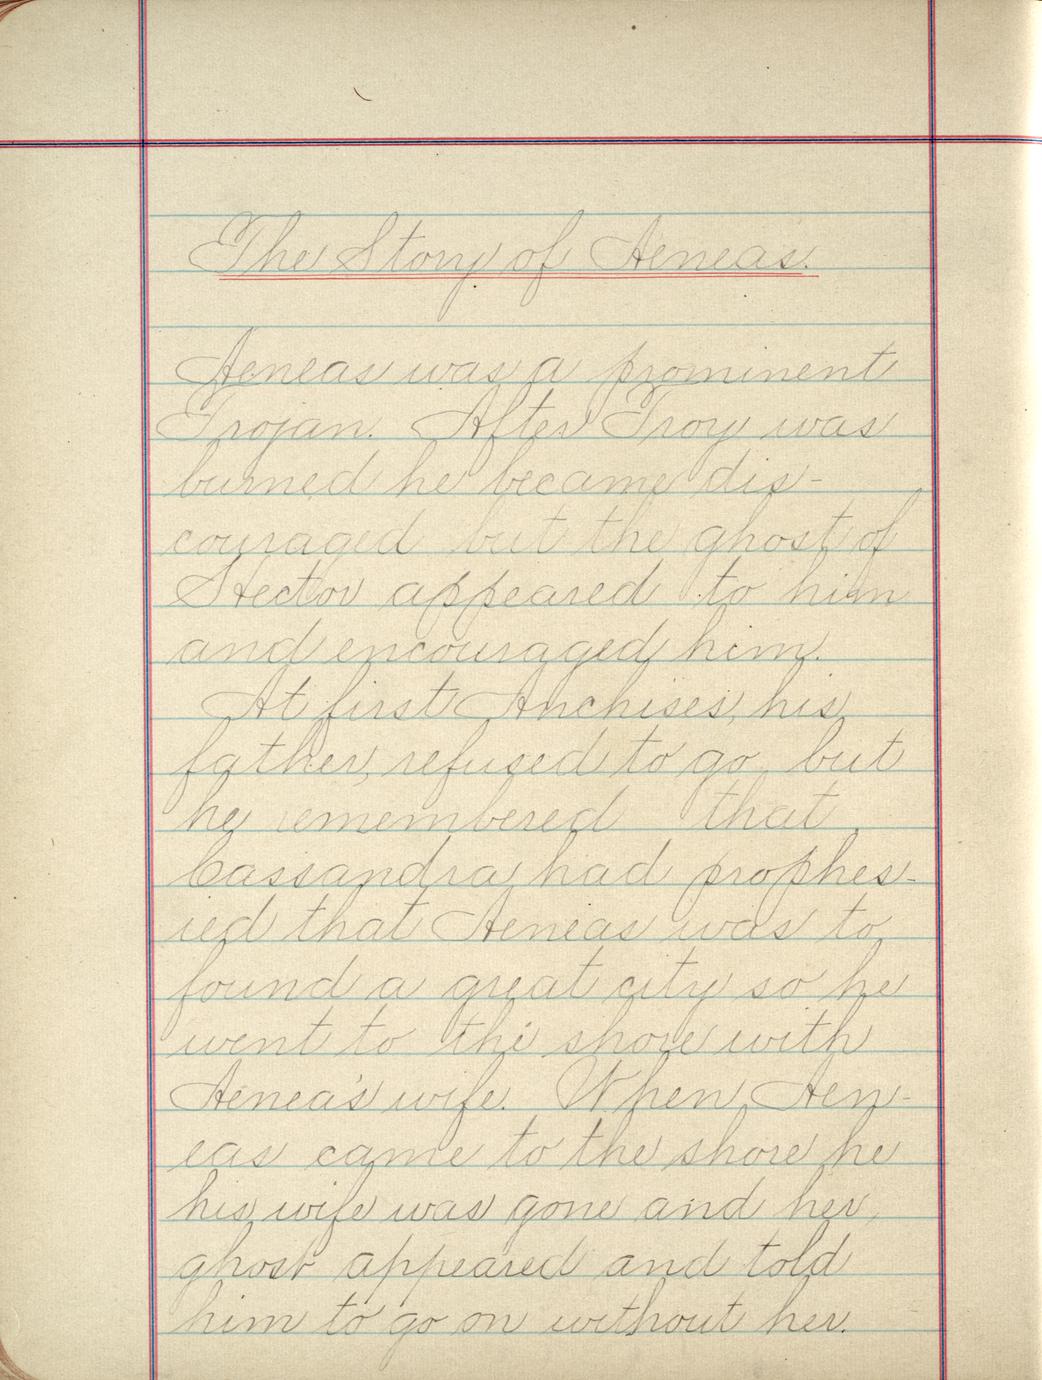 The Story of Aeneas.
Aeneas was a prominent
Trojan. After Troy was
burned he became dis-
couraged but the ghost of
Hector appeared to him
and encouraged him.
At first Anchises, his
father, refused to go, but
he remembered that
Cassandra had prophes-
ied that Aeneas was to
found a great city so he
went to the shore with
Aenea's wife. When Aen-
eas came to the shore he
his wife was gone and her,
ghost appeared and told
him to go on without her.